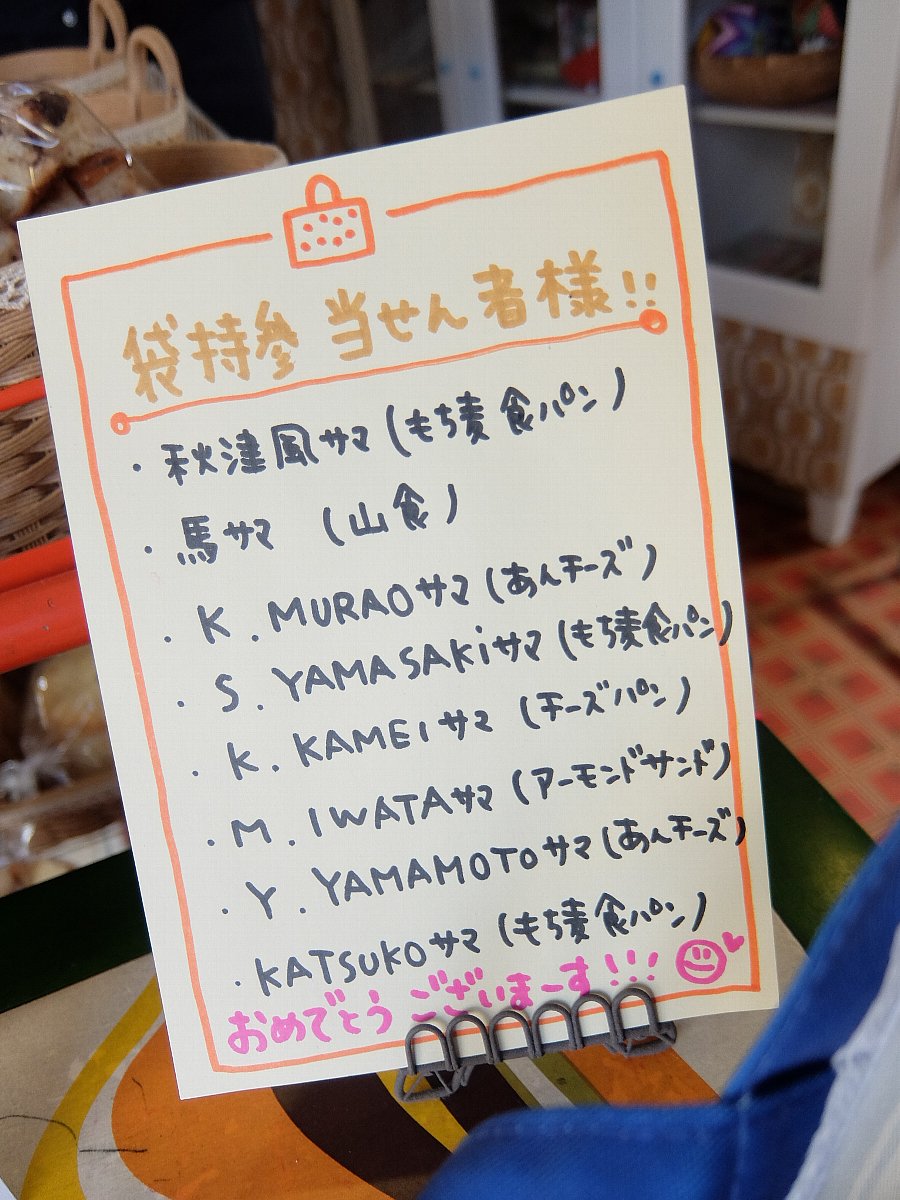 袋持参 当せん者様!!
・秋津風サマ(もち麦食パン)
・馬サマ (山食)
・K.MURAOサマ(あんチーズ)
・S.YAMASAKiサマ(もち麦食パン)
・K.KAMEIサマ(チーズパン)
・M.IWATAサマ(アーモンドサンド)
・Y.YAMAMOTOサマ(あんチーズ)
・KATSUKOサマ(もち麦食パン)
おめでとうございまーす!!!